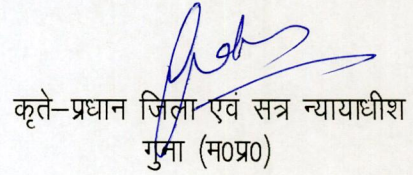 कृते–प्रधान जिला एवं सत्र न्यायाधीश
गुना (म0प्र0)